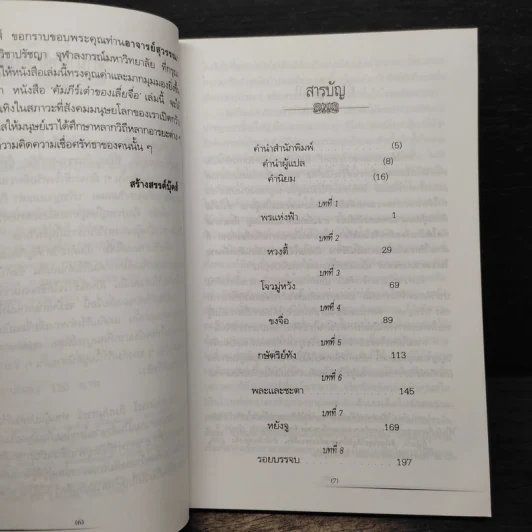 ขอกราบขอบพระคุณท่านอาจารย์สุวรรณา
วิชาปรัชญา จุฬาลงกรณ์มหาวิทยาลัย ที่กรุณา
ให้หนังสือเล่มนี้ทรงคุณค่าและมากมุมมองยิ่งขึ้น
หนังสือ 'คัมภีร์เต๋าของเลี่ยจื่อ' เล่มนี้ จะได้
เทิงในสภาวะที่สังคมมนุษยโลกของเราเปิดกว้าง
สให้มนุษย์เราได้ศึกษาหลากวิถีหลากอารยะต่าง ๆ
ความคิดความเชื่อศรัทธาของคนนั้น ๆ
สร้างสรรค์บุ๊คส์
(6)
สารบัญ
คำนำสำนักพิมพ์ (5)
คำนำผู้แปล (8)
คำนิยม (16)
บทที่ 1
พรแห่งฟ้า 1
บทที่ 2
หวงตี้ 29
บทที่ 3
โจวมู่หวัง 69
บทที่ 4
ขงจื่อ 89
บทที่ 5
กษัตริย์ทัง 113
บทที่ 6
พละและชะตา 145
บทที่ 7
หยังจู 169
บทที่ 8
รอยบรรจบ 197
(7)